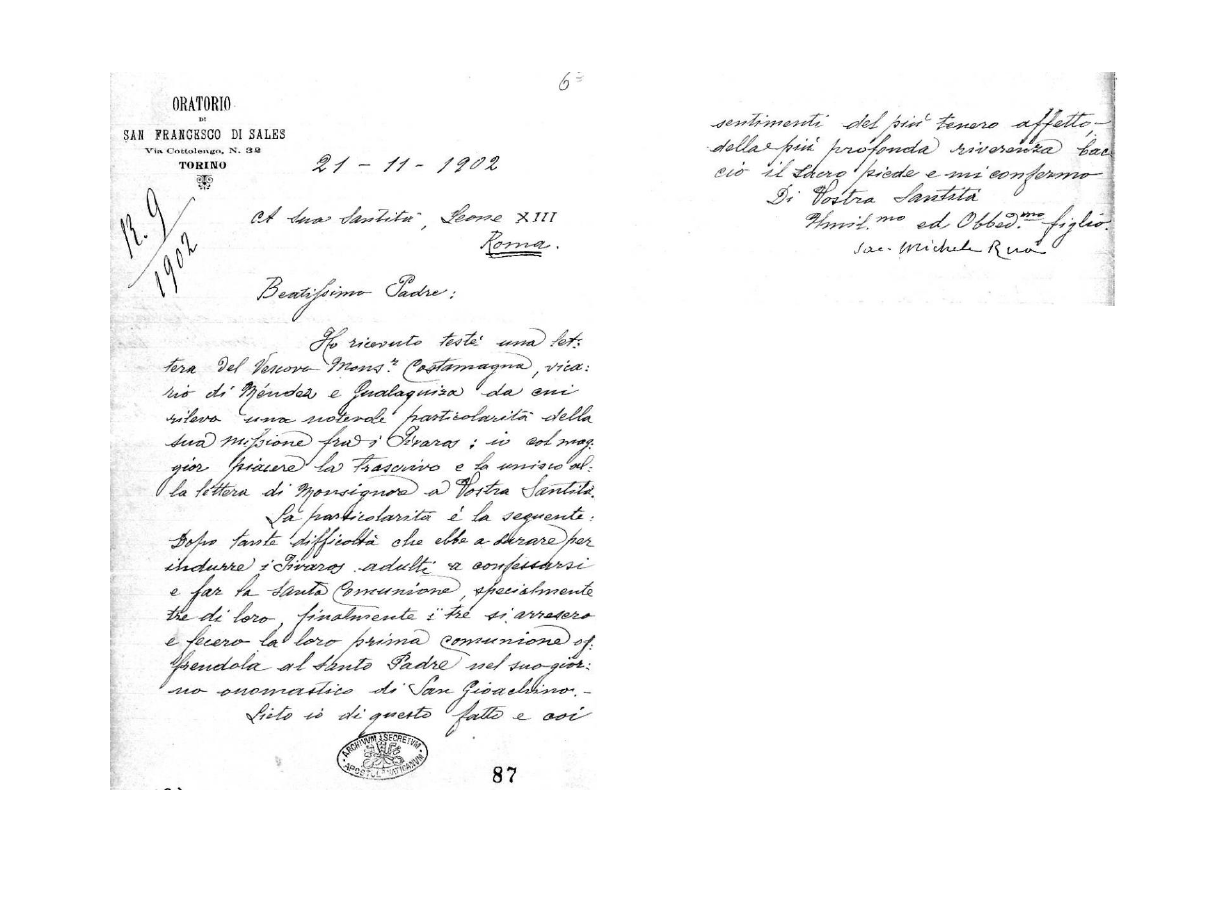 6
ORATORIO
DI
SAN FRANCESCO DI SALES
Via Cottolengo, N. 32
TORINO
21 - 11 - 1902
R. 9
1902
A Sua Santità, Leone XIII
Roma.
Beatissimo Padre:
Ho ricevuto testé una let:
tera del Vescovo Mons.r Costamagna, vica:
rio di Méndez e Gualaquiza da cui
rilevo una notevole particolarità della
sua missione fra i Jivaros; io col mag:
gior piacere la trascrivo e la unisco al:
la lettera di Monsignore a Vostra Santità.
La particolarità é la seguente:
Dopo tante difficoltà che ebbe a durare per
indurre i Jivaros adulti a confessarsi
e far la Santa Comunione, specialmente
tre di loro, finalmente i tre si arresero
e fecero la loro prima comunione of:
frendola al Santo Padre nel suo gior:
no onomastico di San Gioachino.-
Lieto io di questo fatto e coi
ARCHIVVM SECRETVM
APOSTOL. VATICANVM
87
sentimenti del più tenero affetto,
della più profonda riverenza bac
cio il Sacro piede e mi confermo
Di Vostra Santità
Umil.mo ed Obbed.mo figlio.
Sac. Michele Rua